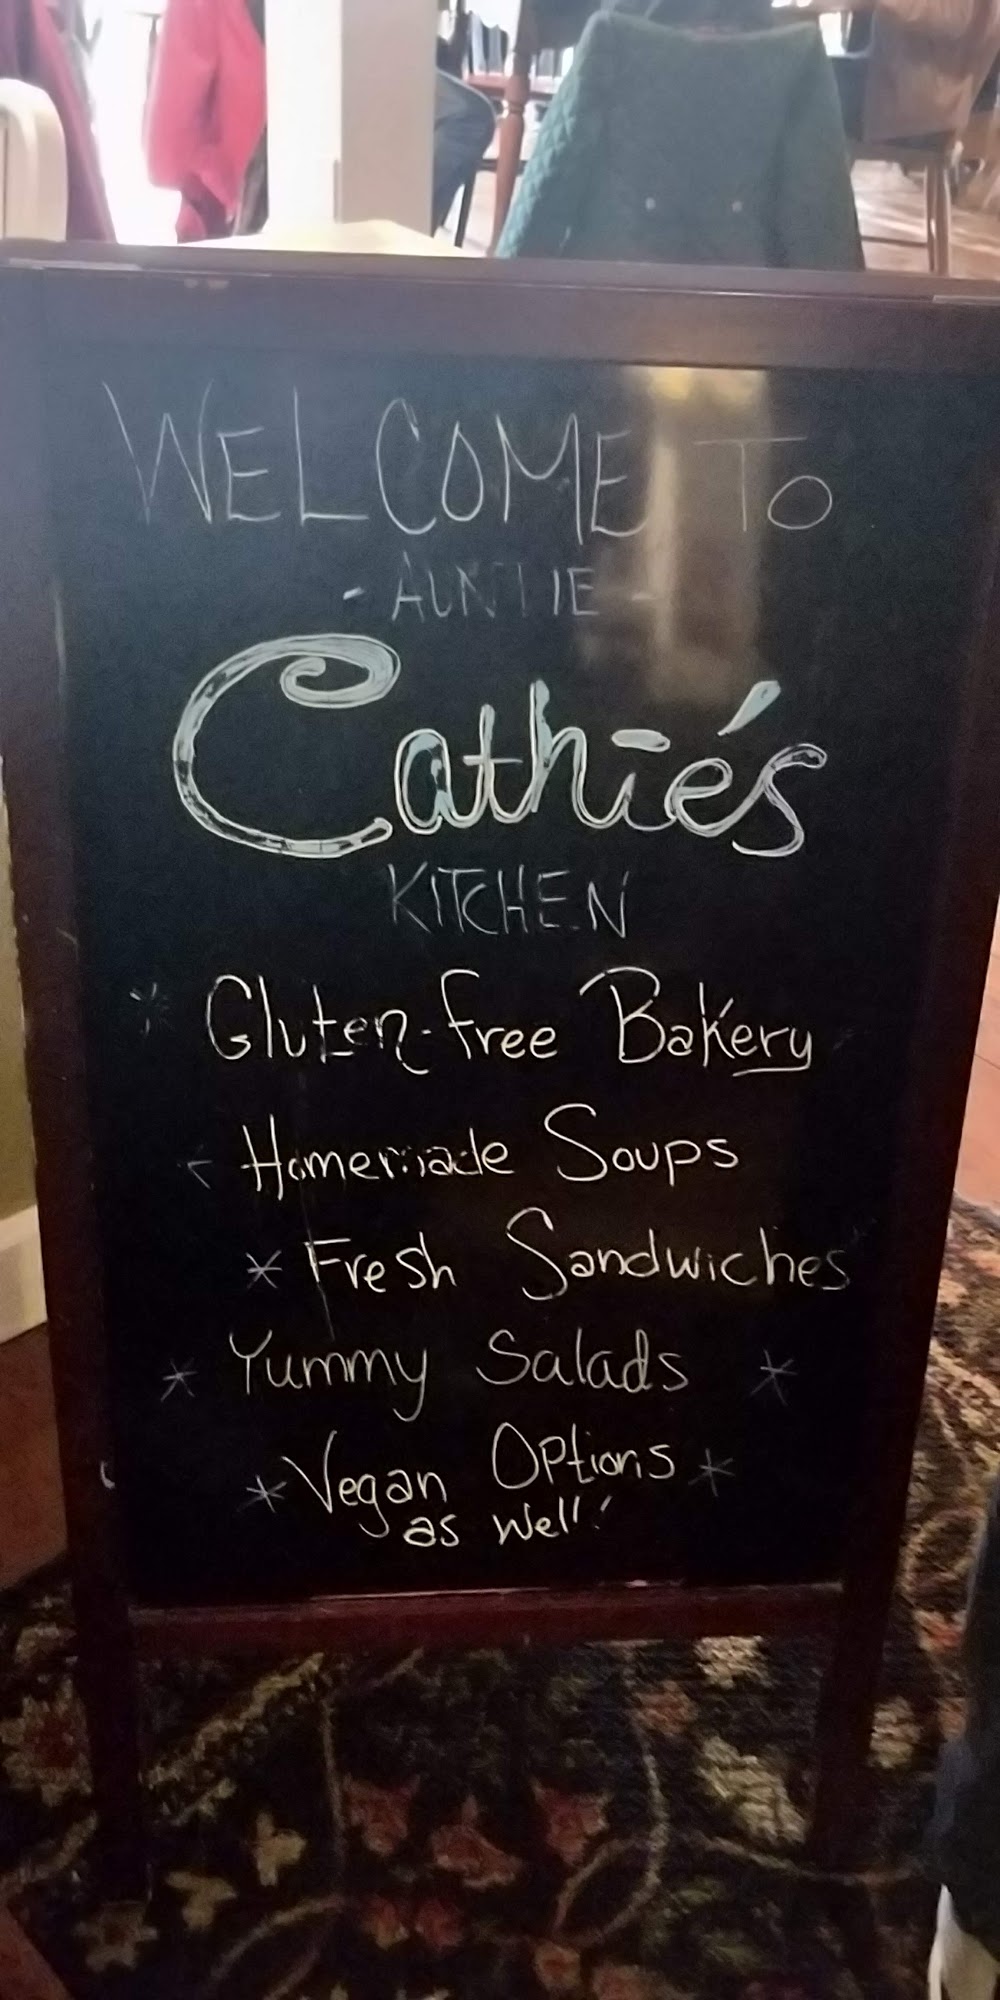 WELCOME TO
- AUNTIE -
Cathie's
KITCHEN
* Gluten-free Bakery
Homemade Soups
* Fresh Sandwiches
* Yummy Salads *
* Vegan Options *
as well!